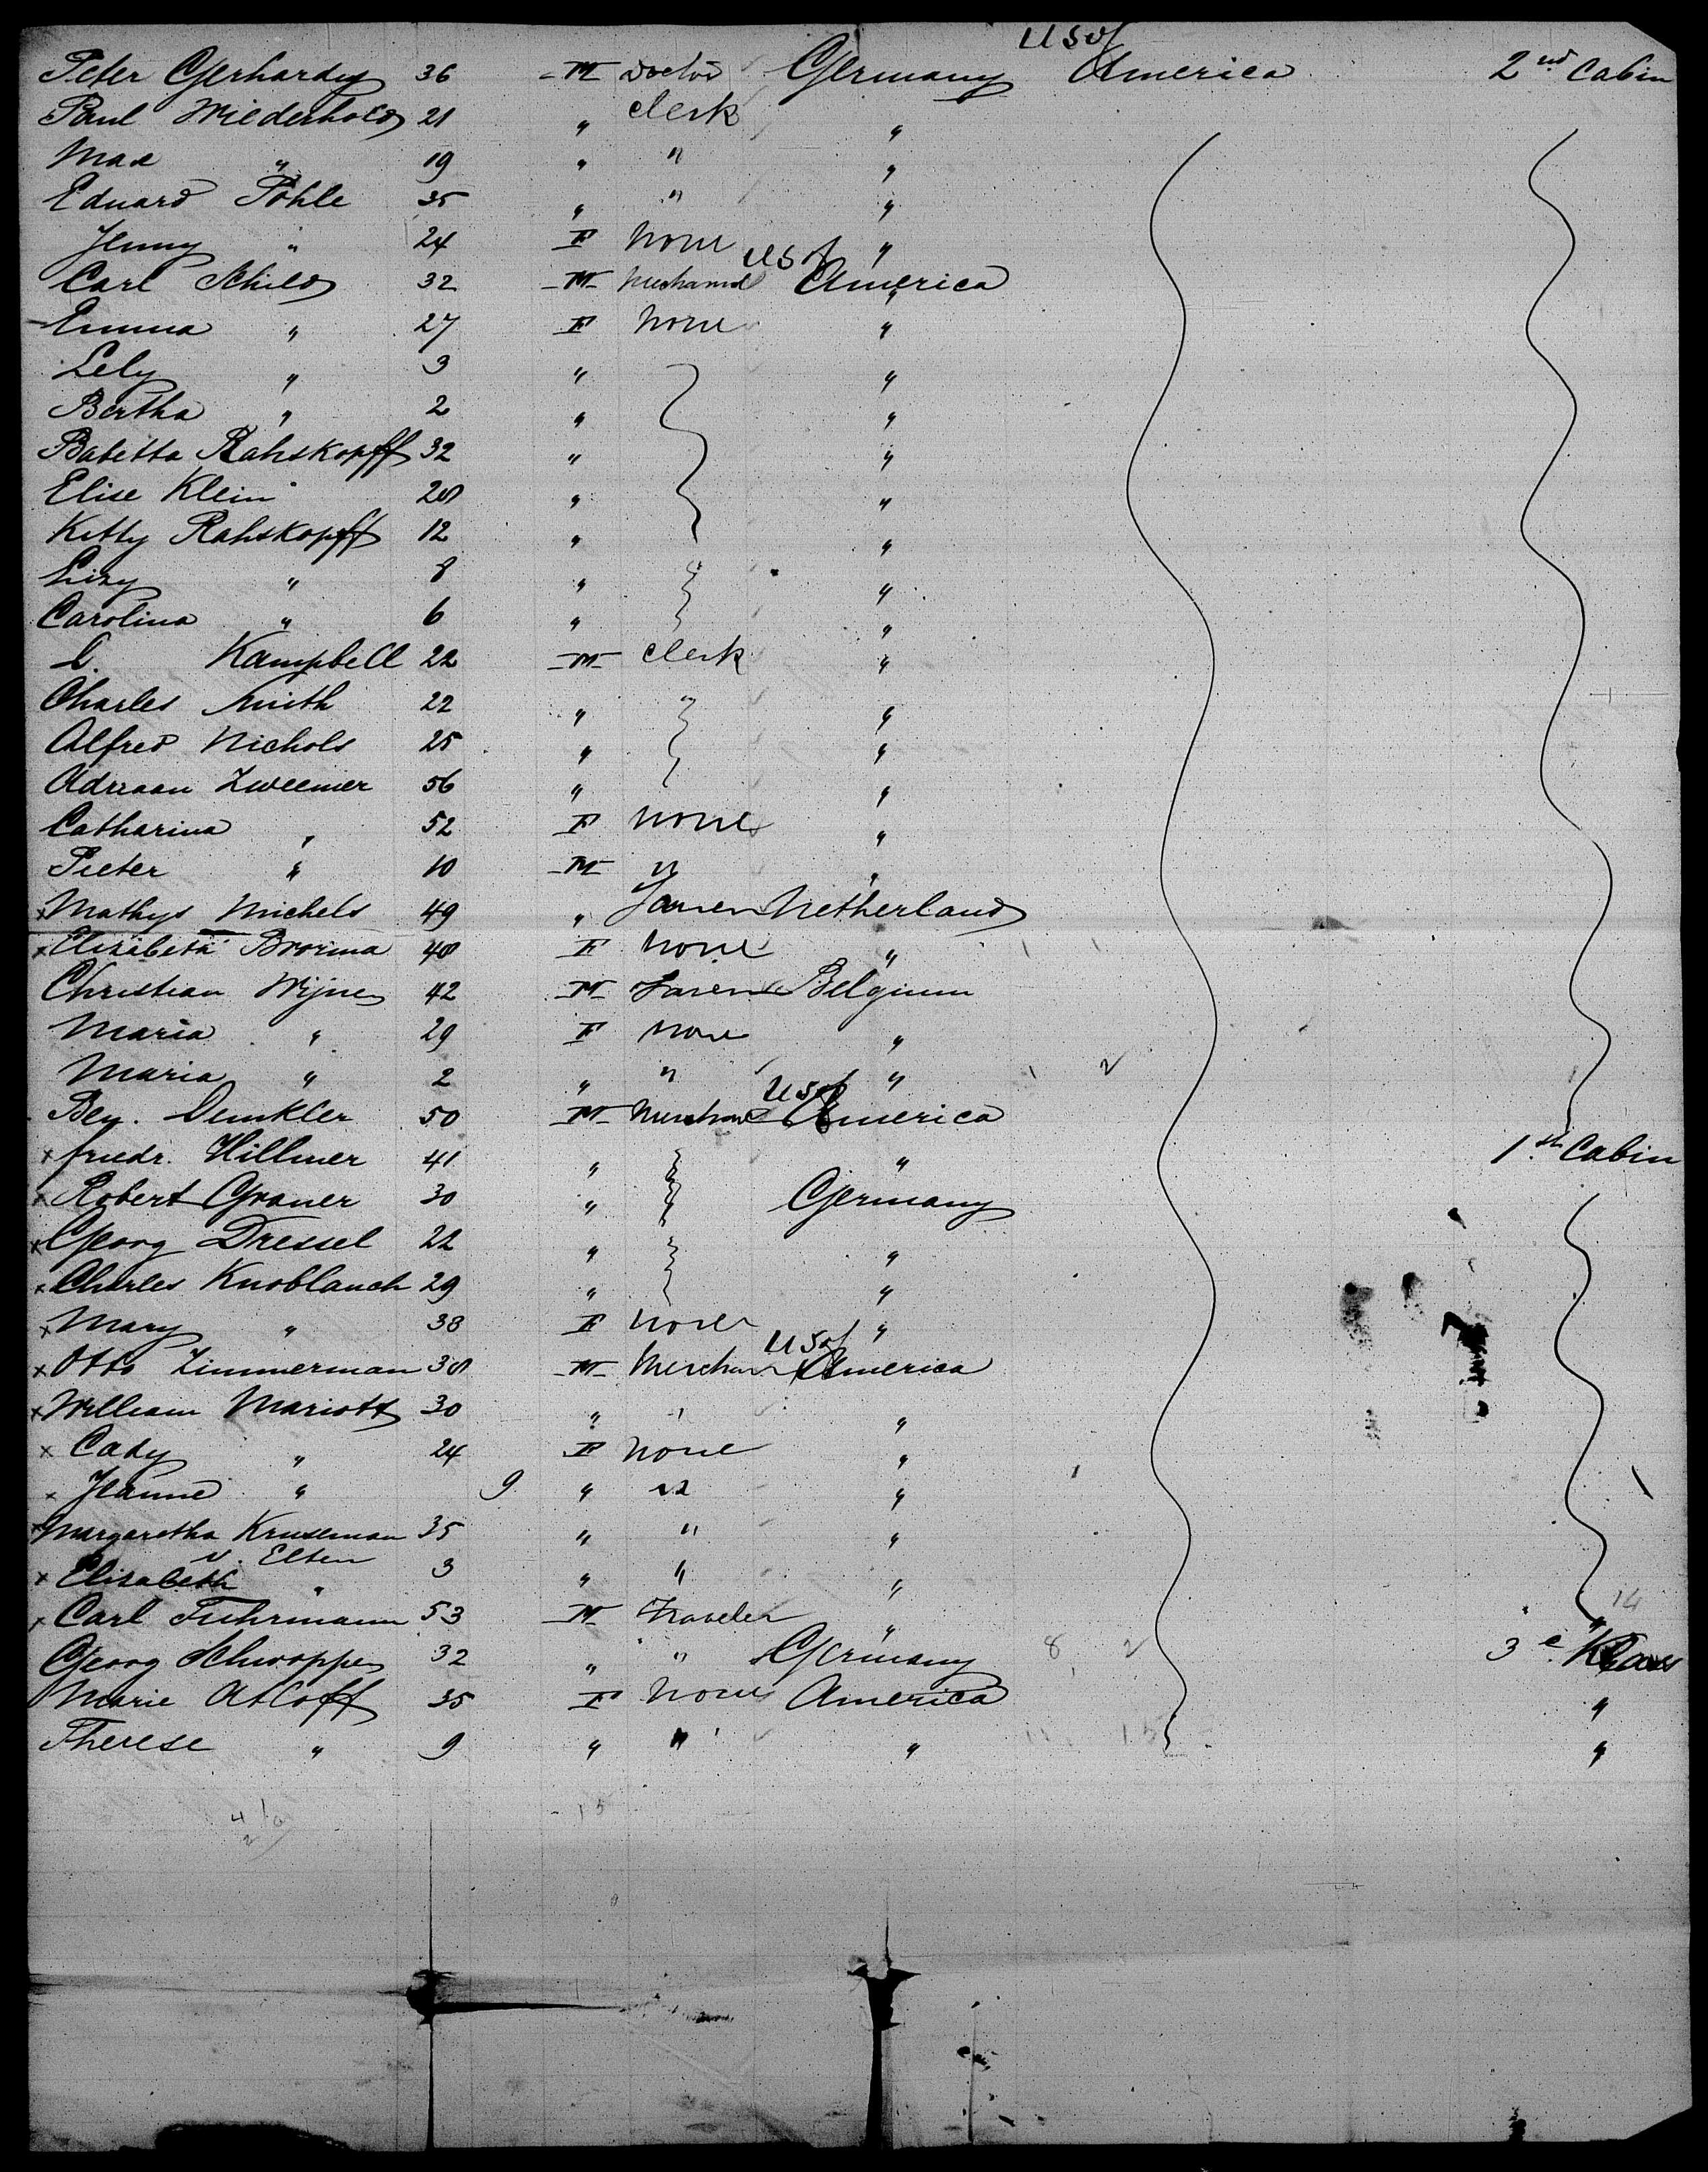 U S of
Peter Gerhardy 36 M Doctor Germany America 2nd Cabin
Paul Wiederhold 21 " clerk "
Max " 19 " " "
Eduard Pohle 35 " " "
Jenny " 24 F None "
U S of
Carl Schild 32 M Mechanic America
Emma " 27 F None "
Lely " 3 " "
Bertha " 2 " "
Babetta Rahskopff 32 " "
Elise Klein 28 " "
Kitty Rahskopff 12 " "
Lizy " 8 " "
Carolina " 6 " "
Kampbell 22 M Clerk "
Charles Smith 22 " "
Alfred Nichols 25 " "
Adriaan Zweemer 56 " "
Catharina " 52 F None "
Pieter " 10 M " "
x Mathys Michels 49 " Netherland
x Elisabeth Brorma 48 F None "
Christian Wijne 42 M Belgium
Maria " 29 F None "
Maria " 2 " " "
U S of
Bey. Denkler 50 M Merchant America
x friedr. Hillmer 41 " " 1st Cabin
x Robert Graner 30 " Germany
x Georg Dressel 22 " "
x Charles Knoblauch 29 " "
x Mary " 38 F None "
U S of
x Otto Zimmerman 38 M Merchant America
x William Mariott 30 " " "
x Cady " 24 F None "
x Jeanne " 9 " " "
x Margaretha Kruseman 35 " " "
v. Elten
x Elisabeth " 3 " " "
x Carl Fuhrmann 53 M Traveler " 14
Georg Schwoppe 32 " " Germany 8 2 3e Klass
Marie Atloff 35 F None America "
Therese " 9 " " " 11 15 "
15